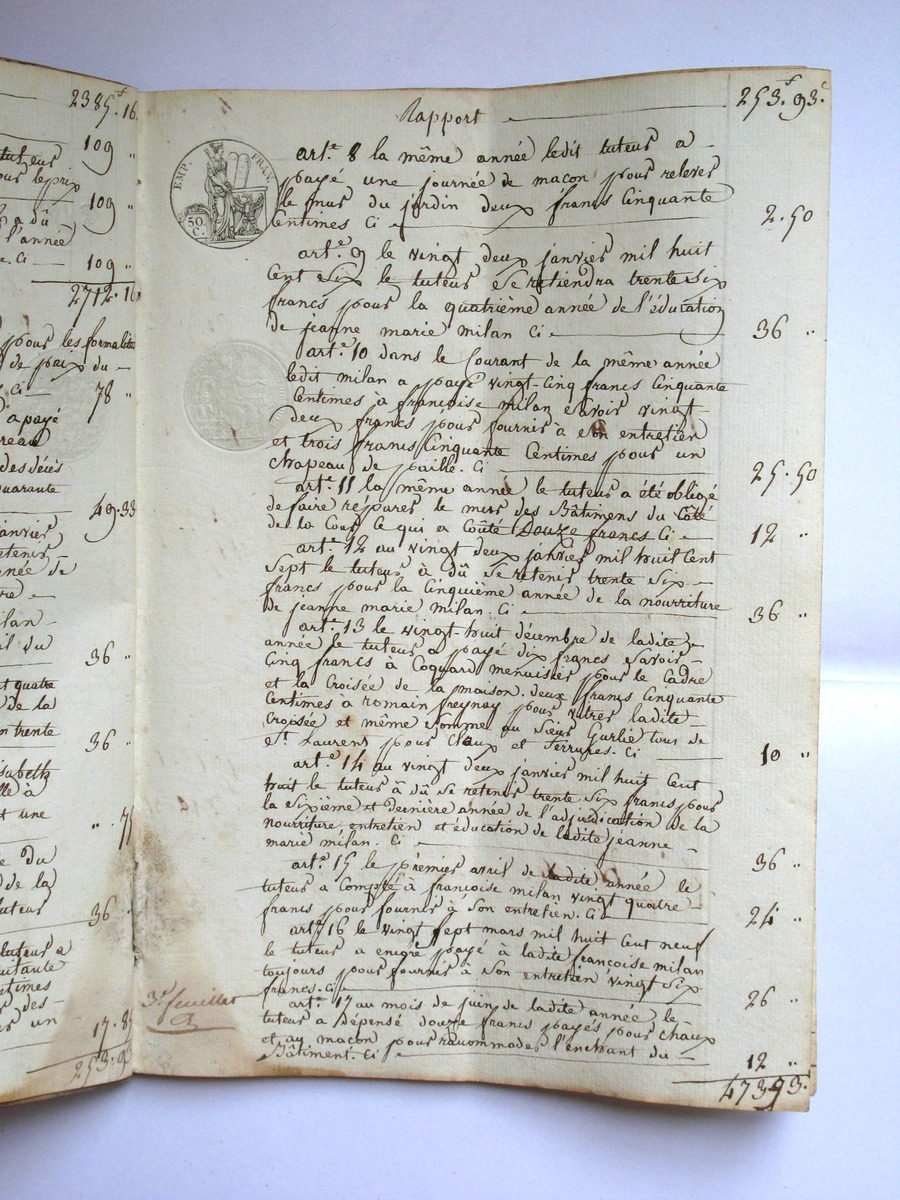 2385.f 16
109 "
tuteur
pour le prix
109 "
a dû
l'année
e. Ci — 109 "
2712. 16
pour les formalités
de paix du —
Ci — 78 "
a payé
des décès
quarante
49. 33
janvier
retenir
année de
milan —
36 "
et quatre
de la
en trente
36 "
Elisabeth
et une
" 75
de la
tuteur
36 "
tuteur a
huitante
centimes
des —
un
17. 85
253. 93
Rapport — 253.f 93.c
EMP. FRAN.
50 C.
art.e 8 la même année ledit tuteur a
payé une journée de macon pour relever
le mur du jardin deux francs Cinquante
Centimes Ci — 2. 50
art.e 9 le vingt deux janvier mil huit
Cent Six le tuteur Se retiendra trente Six
francs pour la quatrième année de l'éducation
de jeanne marie milan Ci — 36 "
art.e 10 dans le Courant de la même année
ledit milan a payé vingt-Cinq francs Cinquante
Centimes à françoise milan Savoir vingt
deux francs pour fournir à Son entretien
et trois francs Cinquante Centimes pour un
chapeau de paille. Ci — 25. 50
art.e 11 la même année le tuteur a été obligé
de faire réparer le murs des Bâtimens du Côté
de la Cour Ce qui a Coûté Douze francs Ci — 12 "
art.e 12 au vingt deux janvier mil huit Cent
Sept le tuteur à dû Se retenir trente Six —
francs pour la Cinquième année de la nourriture
de jeanne marie milan. Ci — 36 "
art.e 13 le vingt-huit décembre de ladite
année le tuteur a payé dix francs Savoir —
Cinq francs à Coquard menuisier pour le Cadre
et la Croisée de la maison. deux francs Cinquante
Centimes à romain freynay pour vitrer ladite —
Croisée et même Somme au Sieur Gurlié tous de
St. Laurent pour Claux et ferrures. Ci — 10 "
art.e 14 au vingt deux janvier mil huit Cent
huit le tuteur à dû Se retenir trente Six francs pour
la Sixième et dernière année de l'adjudication de la
nourriture, entretien et éducation de ladite jeanne —
marie milan. Ci — 36 "
art.e 15 le premier avril de ladite année le
tuteur a Compté à françoise milan vingt quatre —
francs pour fournir à Son entretien. Ci — 24 "
art.e 16 le vingt Sept mars mil huit Cent neuf
le tuteur a encore payé à ladite françoise milan
toujours pour fournir à Son entretien vingt Six
francs. Ci — 26 "
3.e feuillet
art.e 17 au mois de juin de ladite année le
tuteur a Dépensé douze francs payés pour chaux
et au macon pour racommoder l'enchant du —
Bâtiment. Ci — 12 "
473. 93.